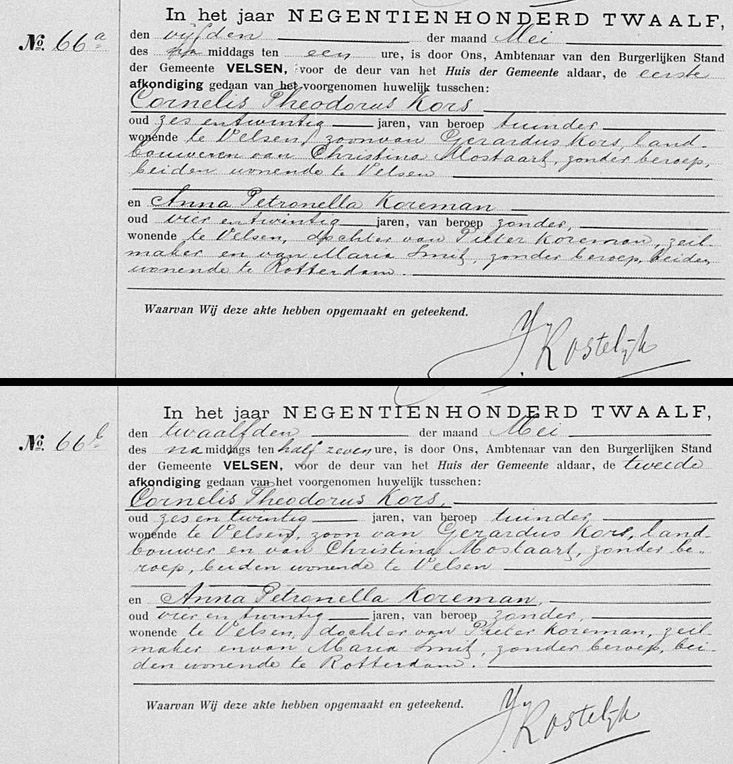 In het jaar NEGENTIENHONDERD TWAALF,
No. 66a
den vijfden der maand Mei
des na middags ten een ure, is door Ons, Ambtenaar van den Burgerlijken Stand
der Gemeente VELSEN, voor de deur van het Huis der Gemeente aldaar, de eerste
afkondiging gedaan van het voorgenomen huwelijk tusschen:
Cornelis Theodorus Kors
oud zes en twintig jaren, van beroep tuinder
wonende te Velsen, zoon van Gerardus Kors, land-
bouwer en van Christina Mostaart, zonder beroep,
beiden wonende te Velsen
en Anna Petronella Koreman
oud vier en twintig jaren, van beroep zonder,
wonende te Velsen, dochter van Pieter Koreman, zeil-
maker en van Maria Smit, zonder beroep, beiden
wonende te Rotterdam.
Waarvan Wij deze akte hebben opgemaakt en geteekend.
J. Kostelijk
In het jaar NEGENTIENHONDERD TWAALF,
No. 66b
den twaalfden der maand Mei
des na middags ten half zeven ure, is door Ons, Ambtenaar van den Burgerlijken Stand
der Gemeente VELSEN, voor de deur van het Huis der Gemeente aldaar, de tweede
afkondiging gedaan van het voorgenomen huwelijk tusschen:
Cornelis Theodorus Kors,
oud zes en twintig jaren, van beroep tuinder
wonende te Velsen, zoon van Gerardus Kors, land-
bouwer en van Christina Mostaart, zonder be-
roep, beiden wonende te Velsen
en Anna Petronella Koreman,
oud vier en twintig jaren, van beroep zonder,
wonende te Velsen, dochter van Pieter Koreman, zeil-
maker en van Maria Smit, zonder beroep, bei-
den wonende te Rotterdam.
Waarvan Wij deze akte hebben opgemaakt en geteekend.
J. Kostelijk